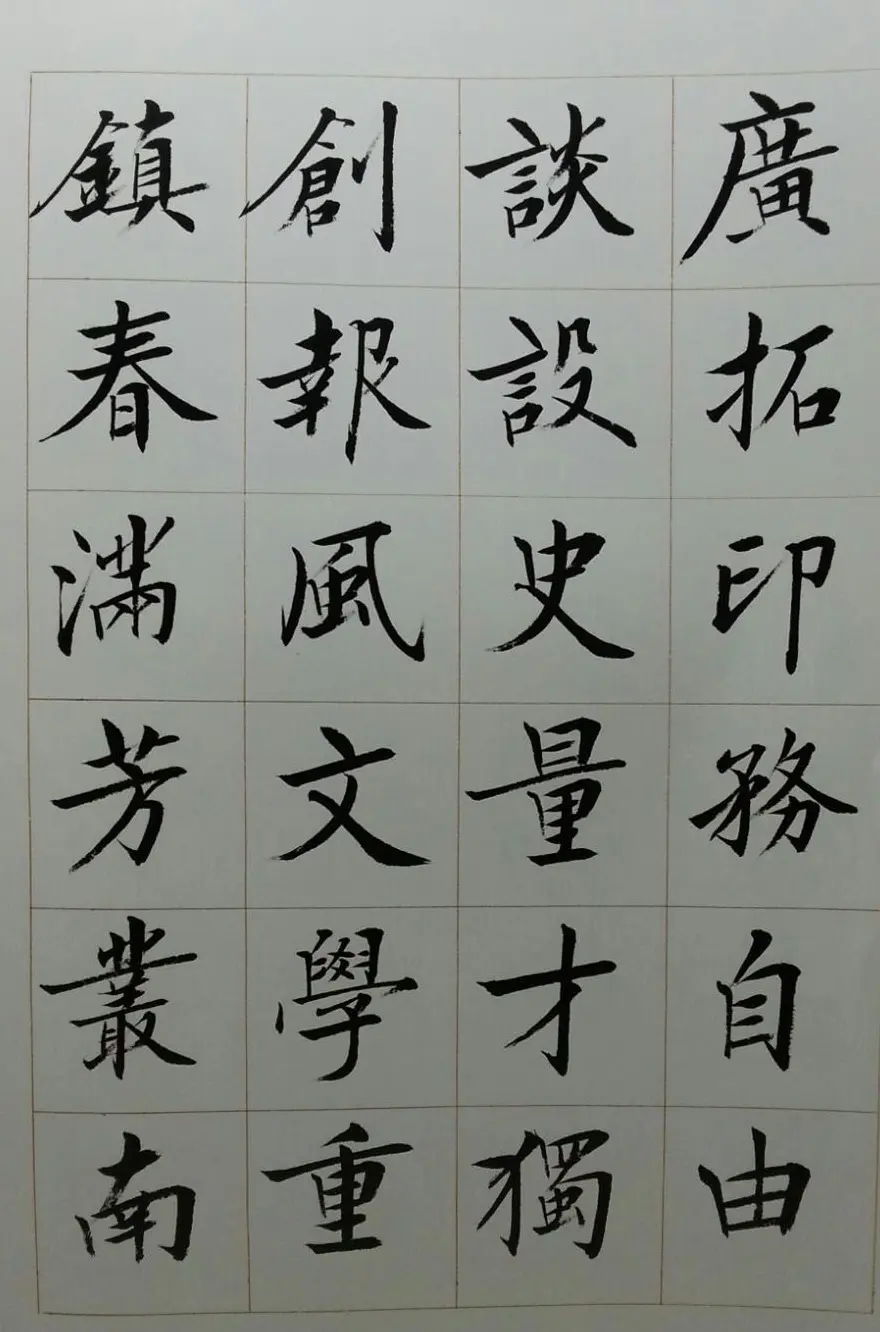 廣拓印務自由
談設史量才獨
創報風文學重
鎮春滿芳叢南